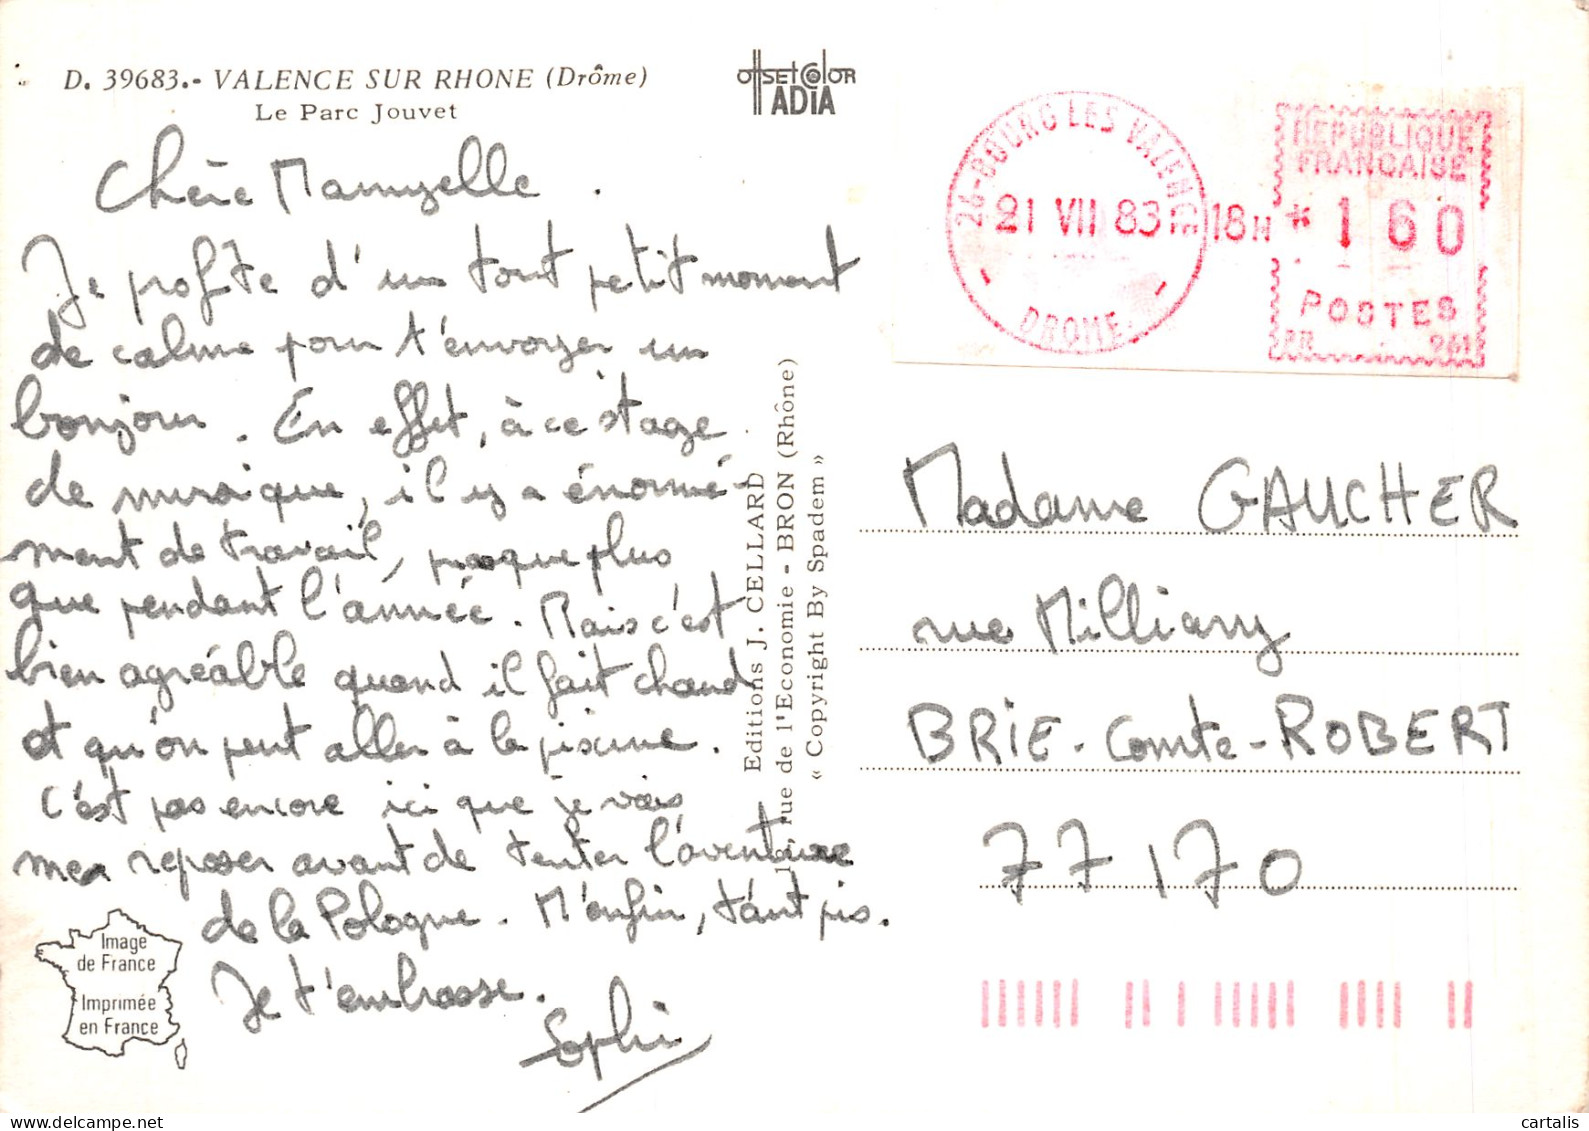 D. 39683.- VALENCE SUR RHONE (Drôme)
Le Parc Jouvet
OffSEt COlOR
ADIA
Chère Mamzelle.
Je profite d'un tout petit moment
de calme pour t'envoyer un
bonjour. En effet, à ce stage
de musique, il y a énormé-
ment de travail, presque plus
que pendant l'année. Mais c'est
bien agréable quand il fait chaud
et qu'on peut aller à la piscine.
C'est pas encore ici que je vais
me reposer avant de tenter l'aventure
de la Pologne. M'enfin, tant pis.
Je t'embrasse.
Sophie
Image
de France
Imprimée
en France
Editions J. CELLARD
rue de l'Economie - BRON (Rhône)
« Copyright By Spadem »
26-BOURG LES VALENCE
21 VII 83
DROME
18H
REPUBLIQUE
FRANCAISE
*160
POSTES
PR 961
Madame GAUCHER
rue Milliany
BRIE-Comte-ROBERT
77170
cartalis